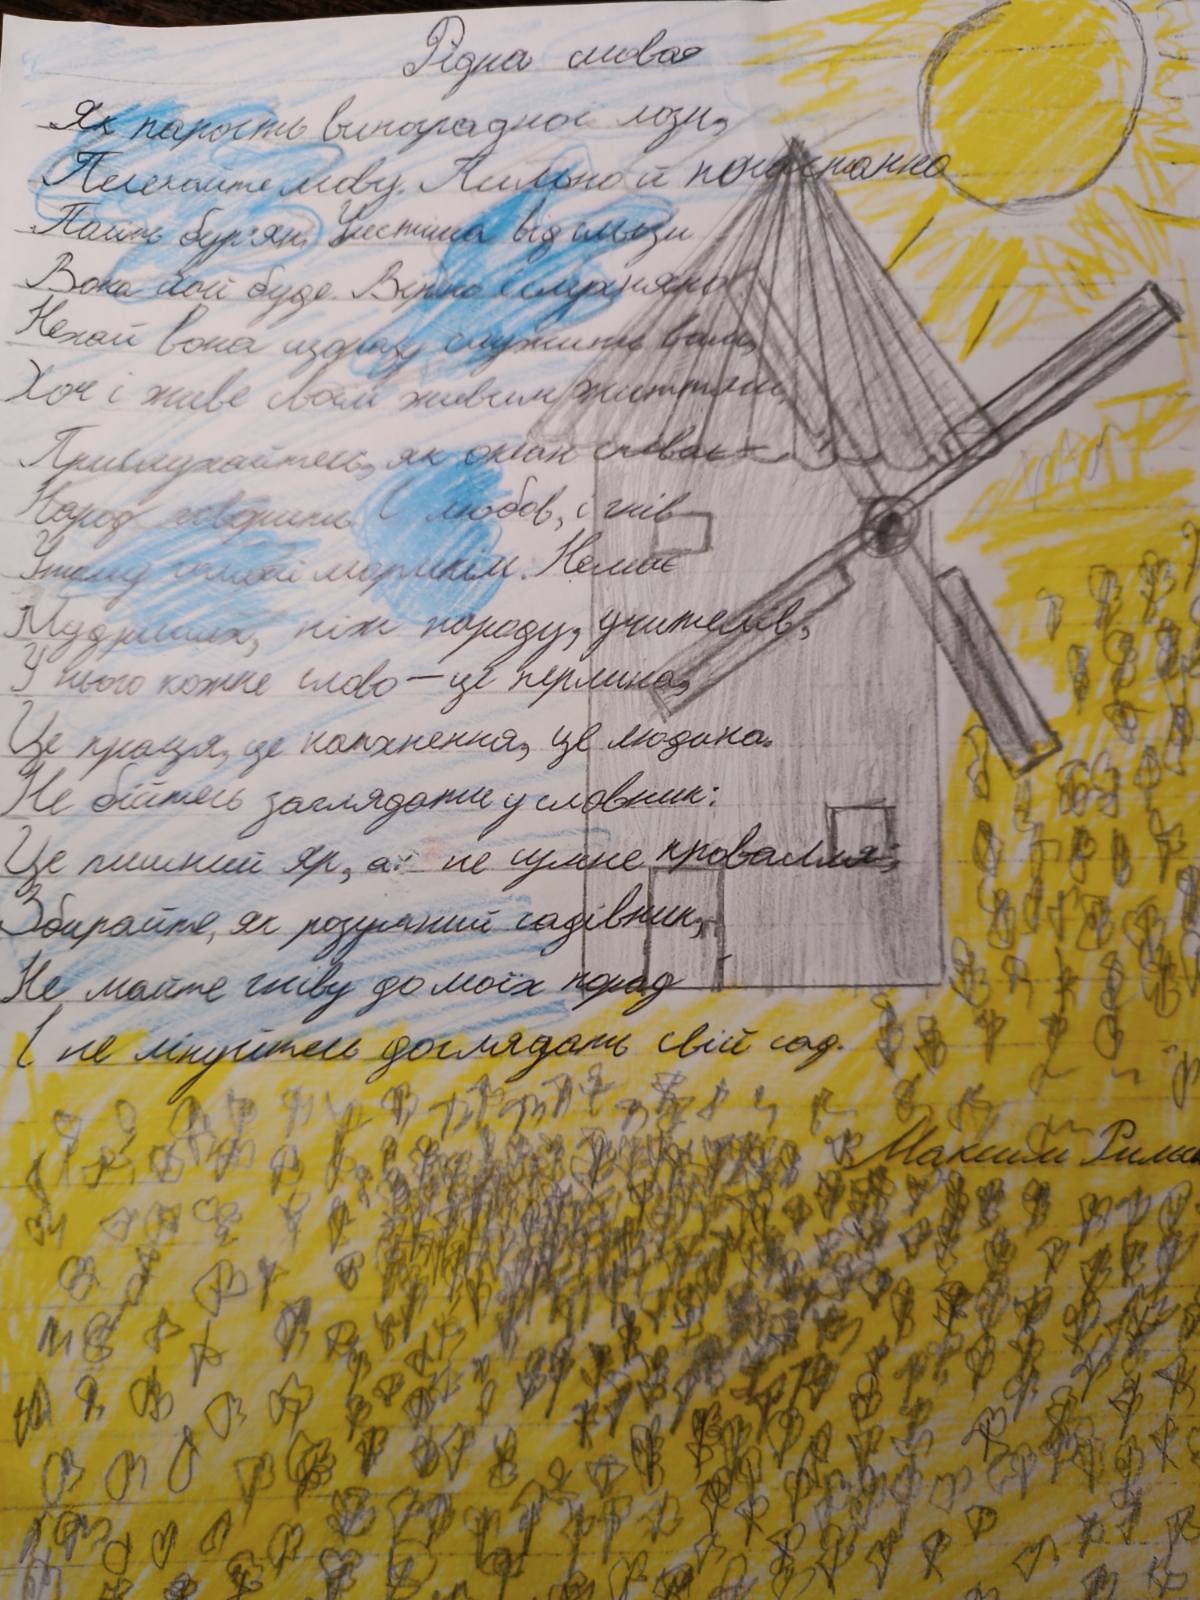 Рідна мова
Як парость виноградної лози,
Плекайте мову. Пильно й ненастанно
Політь бур'ян. Чистіша від сльози
Вона хай буде. Вірно і слухняно
Нехай вона щоразу служить вам,
Хоч і живе своїм живим життям.
Прислухайтесь, як океан співає –
Народ говорить. І любов, і гнів
У тому гомоні морськім. Немає
Мудріших, ніж народ, учителів,
У нього кожне слово – це перлина,
Це праця, це натхнення, це людина.
Не бійтесь заглядати у словник:
Це пишний яр, а не сумне провалля;
Збирайте, як розумний садівник,
Не майте гніву до моїх порад
І не лінуйтесь доглядать свій сад.
Максим